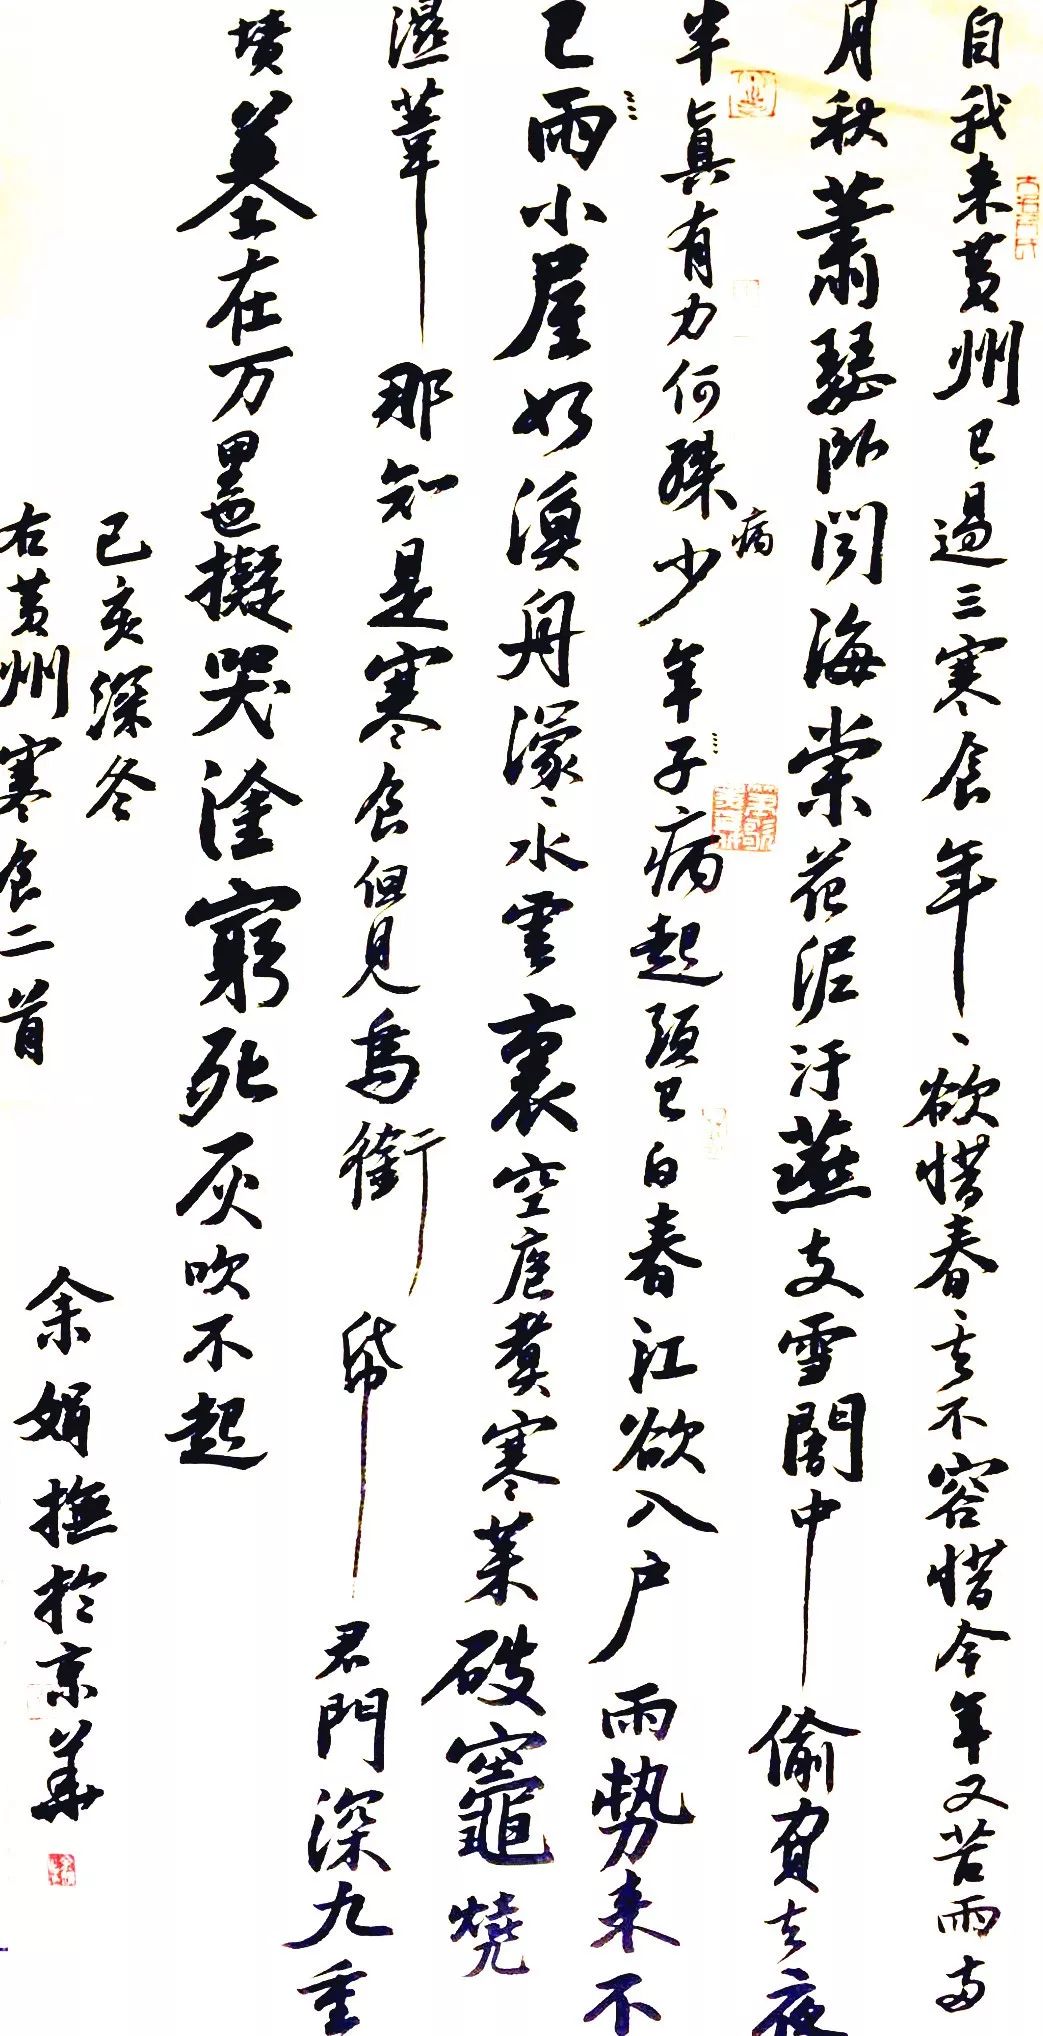 自我来黄州已過三寒食年
、欲惜春去不容惜今年又苦雨兩
月秋蕭瑟卧聞海棠花泥汙燕支雪闇中偷負去夜
半真有力何殊少年子病起頭已白春江欲入户雨勢来不
病
已雨小屋如漁舟濛、水雲裏空庖煮寒菜破竈燒
濕葦那知是寒食但見烏銜帋君門深九重
墳墓在万里也擬哭塗窮死灰吹不起
己亥深冬
右黄州寒食二首
余娟撫於京華